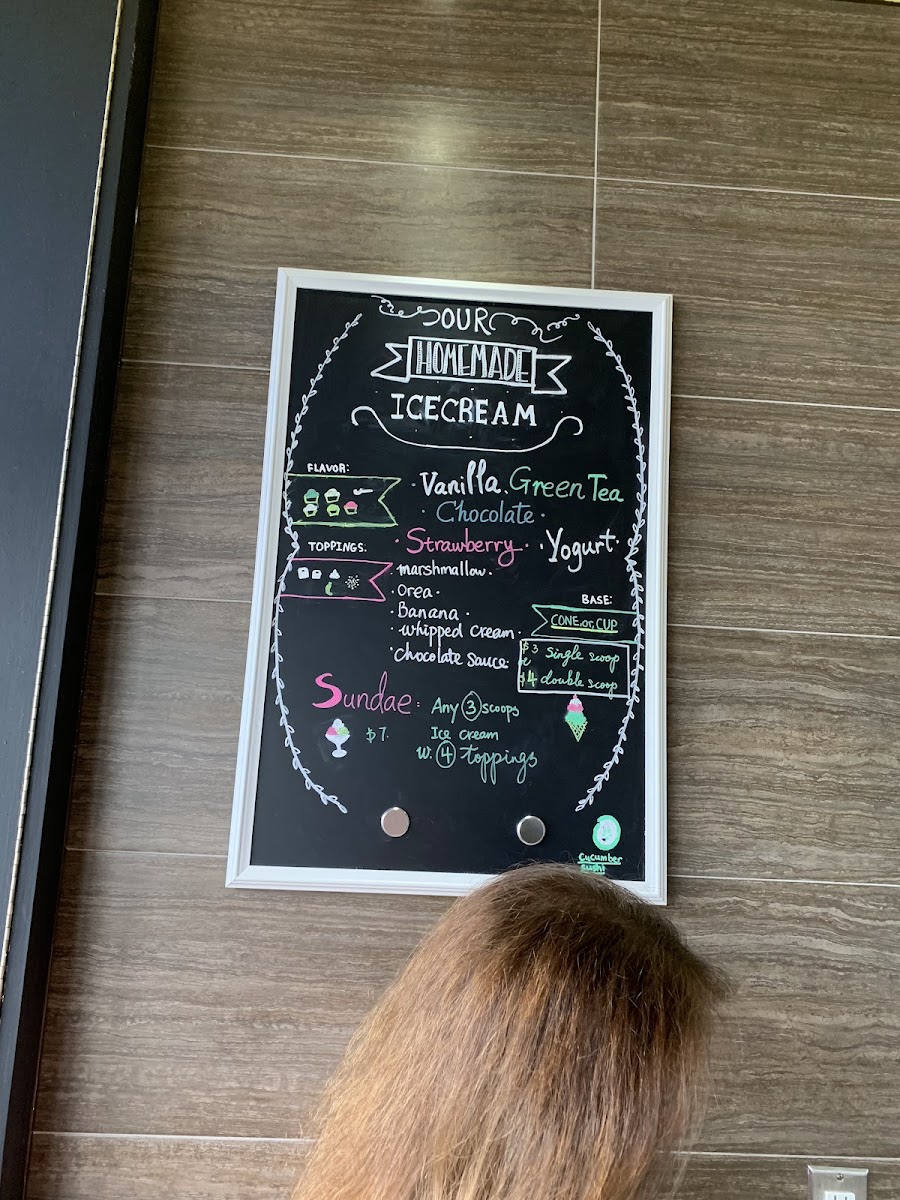 OUR
HOMEMADE
ICECREAM
FLAVOR:
· Vanilla. Green Tea
· Chocolate ·
· Strawberry · · Yogurt ·
TOPPINGS:
marshmallow ·
· Orea ·
· Banana ·
· whipped cream ·
· chocolate sauce
BASE:
CONE.or.CUP
$3 Single scoop
or
$4 double scoop
Sundae: Any 3 scoops
$7. Ice cream
W. 4 toppings
cucumber
sushi